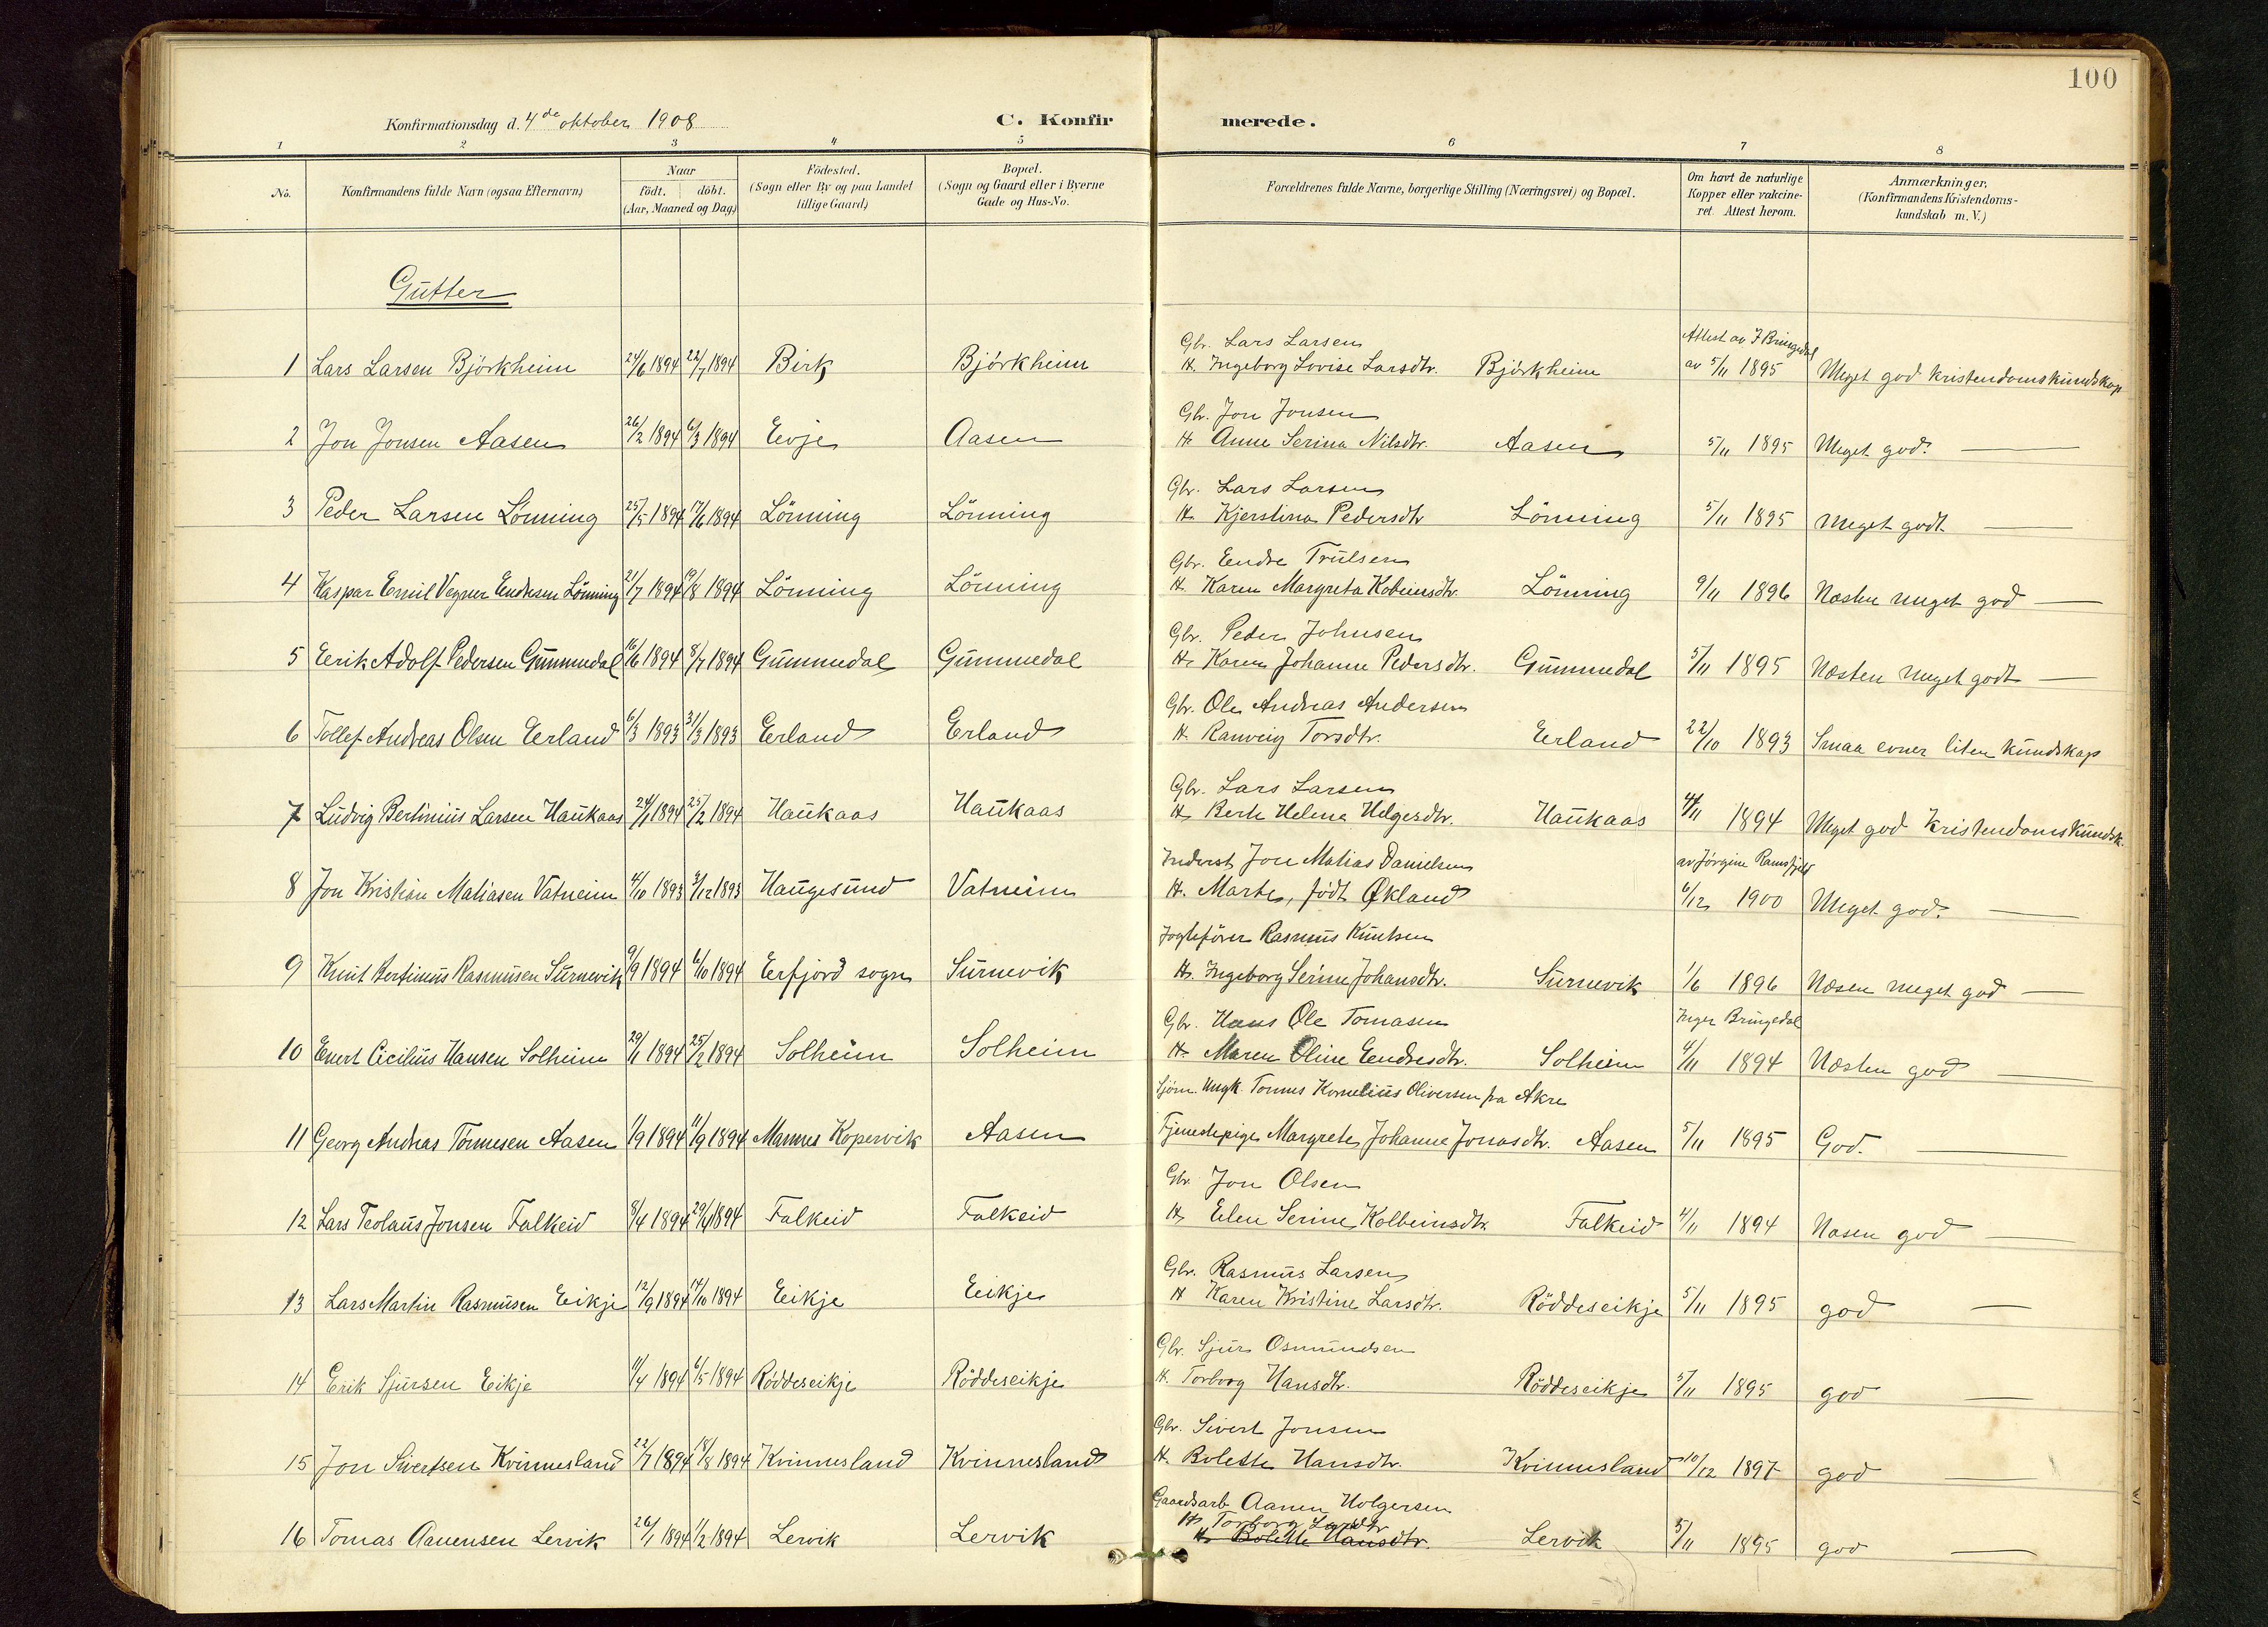 100
Konfirmationsdag d. 4de oktober 1908
C. Konfirmerede.
1 2 3 4 5 6 7 8
No.
Konfirmandens fulde Navn (ogsaa Efternavn)
Naar
födt. döbt.
(Aar, Maaned og Dag)
Födested.
(Sogn eller By og paa Landet
tillige Gaard)
Bopæl.
(Sogn og Gaard eller i Byerne
Gade og Hus-No.
Forældrenes fulde Navne, borgerlige Stilling (Næringsvei) og Bopæl.
Om havt de naturlige
Kopper eller vakcine-
ret. Attest herom.
Anmærkninger,
(Konfirmandens Kristendoms-
kundskab m. V.)
Gutter
Gbr. Lars Larsen Attest av I Bringedal
1 Lars Larsen Björkheim 24/6 1894 22/7 1894 Birk Björkheim H. Ingeborg Lovise Larsdtr. Björkheim av 5/11 1895 Meget god kristendomskundskap
Gbr. Jon Jonsen
2 Jon Jonsen Aasen 26/2 1894 6/3 1894 Evje Aasen H. Anne Serina Nilsdtr. Aasen 5/11 1895 Meget god. —
Gbr. Lars Larsen
3 Peder Larsen Lönning 25/5 1894 17/6 1894 Lönning Lönning H. Kjerstina Pedersdtr Lönning 5/11 1895 Meget godt —
Gbr. Endre Trulsen
4 Kaspar Emil Vegner Endresen Lönning 21/7 1894 19/8 1894 Lönning Lönning H. Karen Margreta Kobeinsdtr. Lönning 9/11 1896 Næsten meget god —
Gbr. Peder Johnsen
5 Eerik Adolf Pedersen Gummedal 16/6 1894 8/7 1894 Gummedal Gummedal H. Karen Johanne Pedersdtr. Gummedal 5/11 1895 Næsten meget godt —
Gbr. Ole Andreas Andersen
6 Tollef Andreas Olsen Eerland 6/3 1893 31/3 1893 Eerland Erland H. Ranveig Torsdtr. Eerland 22/10 1893 Smaa evner liten kundskap
Gbr. Lars Larsen
7 Ludvig Bertinius Larsen Haukaas 24/1 1894 25/2 1894 Haukaas Haukaas H. Berte Helena Helgesdtr. Haukaas 4/11 1894 Meget god Kristendomskundsk.
Inderst Jon Matias Danielsen av Jörgine Ramsfjeld
8 Jon Kristian Matiasen Vatneim 4/10 1893 3/12 1893 Haugesund Vatneim H. Marte, födt Økland 6/12 1900 Meget god. —
Jagtefører Rasmus Knutsen
9 Knut Bertinus Rasmusen Surnevik 9/9 1894 6/10 1894 Eerfjord sogn Surnevik H. Ingeborg Serine Johansdtr. Surnevik 1/6 1896 Næsen meget god —
Gbr. Hans Ole Tomasen Inger Bringedal
10 Enert Cicilius Hansen Solheim 29/1 1894 25/2 1894 Solheim Solheim H. Maren Oline Eendresdtr. Solheim 4/11 1894 Næsten god —
Sjöm. Ungk. Tonnes Kornelius Oliversen fra Akre
11 Georg Andreas Tönnesen Aasen 1/9 1894 11/9 1894 Mannes Kopervik Aasen Tjenestepige Margrete Johanne Jonasdtr. Aasen 5/11 1895 God. —
Gbr. Jon Olsen
12 Lars Teolaus Jonsen Falkeid 8/4 1894 29/4 1894 Falkeid Falkeid H. Elen Serine Kolbeinsdtr. Falkeid 4/11 1894 Næsen god —
Gbr. Rasmus Larsen
13 Lars Martin Rasmusen Eikje 12/9 1894 14/10 1894 Eikje Eikje H Karen Kristine Larsdtr. Röddeseikje 5/11 1895 god —
Gbr. Sjurs Osmundsen
14 Erik Sjursen Eikje 11/4 1894 6/5 1894 Röddeseikje Röddeseikje H. Torborg Hansdtr. Röddeseikje 5/11 1895 god —
Gbr. Sivert Jonsen
15 Jon Sivertsen Kvinnesland 22/7 1894 18/8 1894 Kvinnesland Kvinnesland H. Bolette Hansdtr. Kvinnesland 10/12 1897 god —
Gaardsarb Aanen Holgersen
H. Torborg Larsdtr
16 Tomas Aanensen Lervik 26/1 1894 11/2 1894 Lervik Lervik H. Bolette Hansdtr. Lervik 5/11 1895 god —